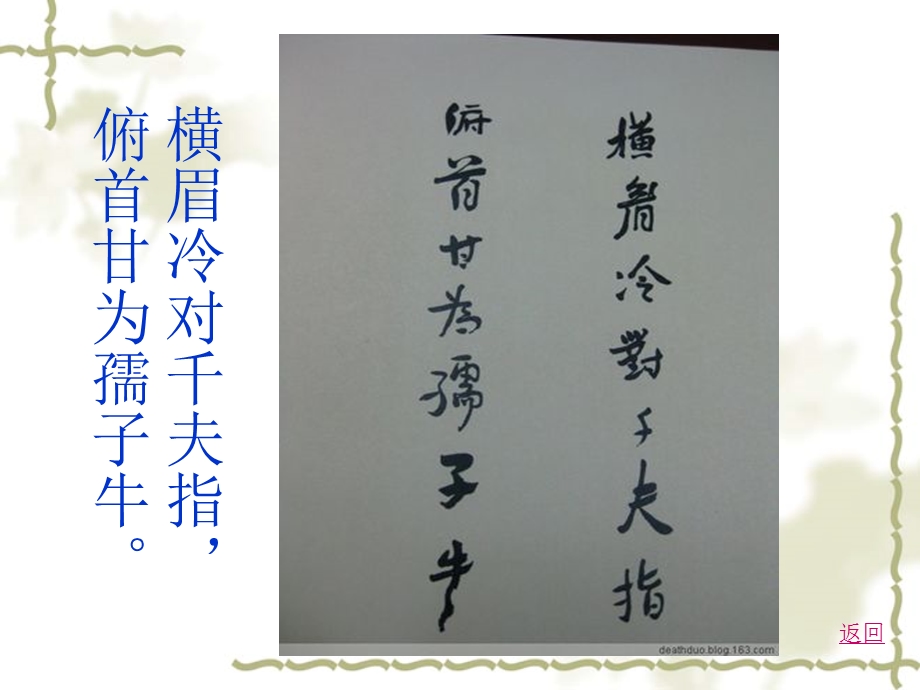 横眉冷对千夫指，
俯首甘为孺子牛。
橫眉冷對千夫指
俯首甘為孺子牛
deathduo.blog.163.com
返回